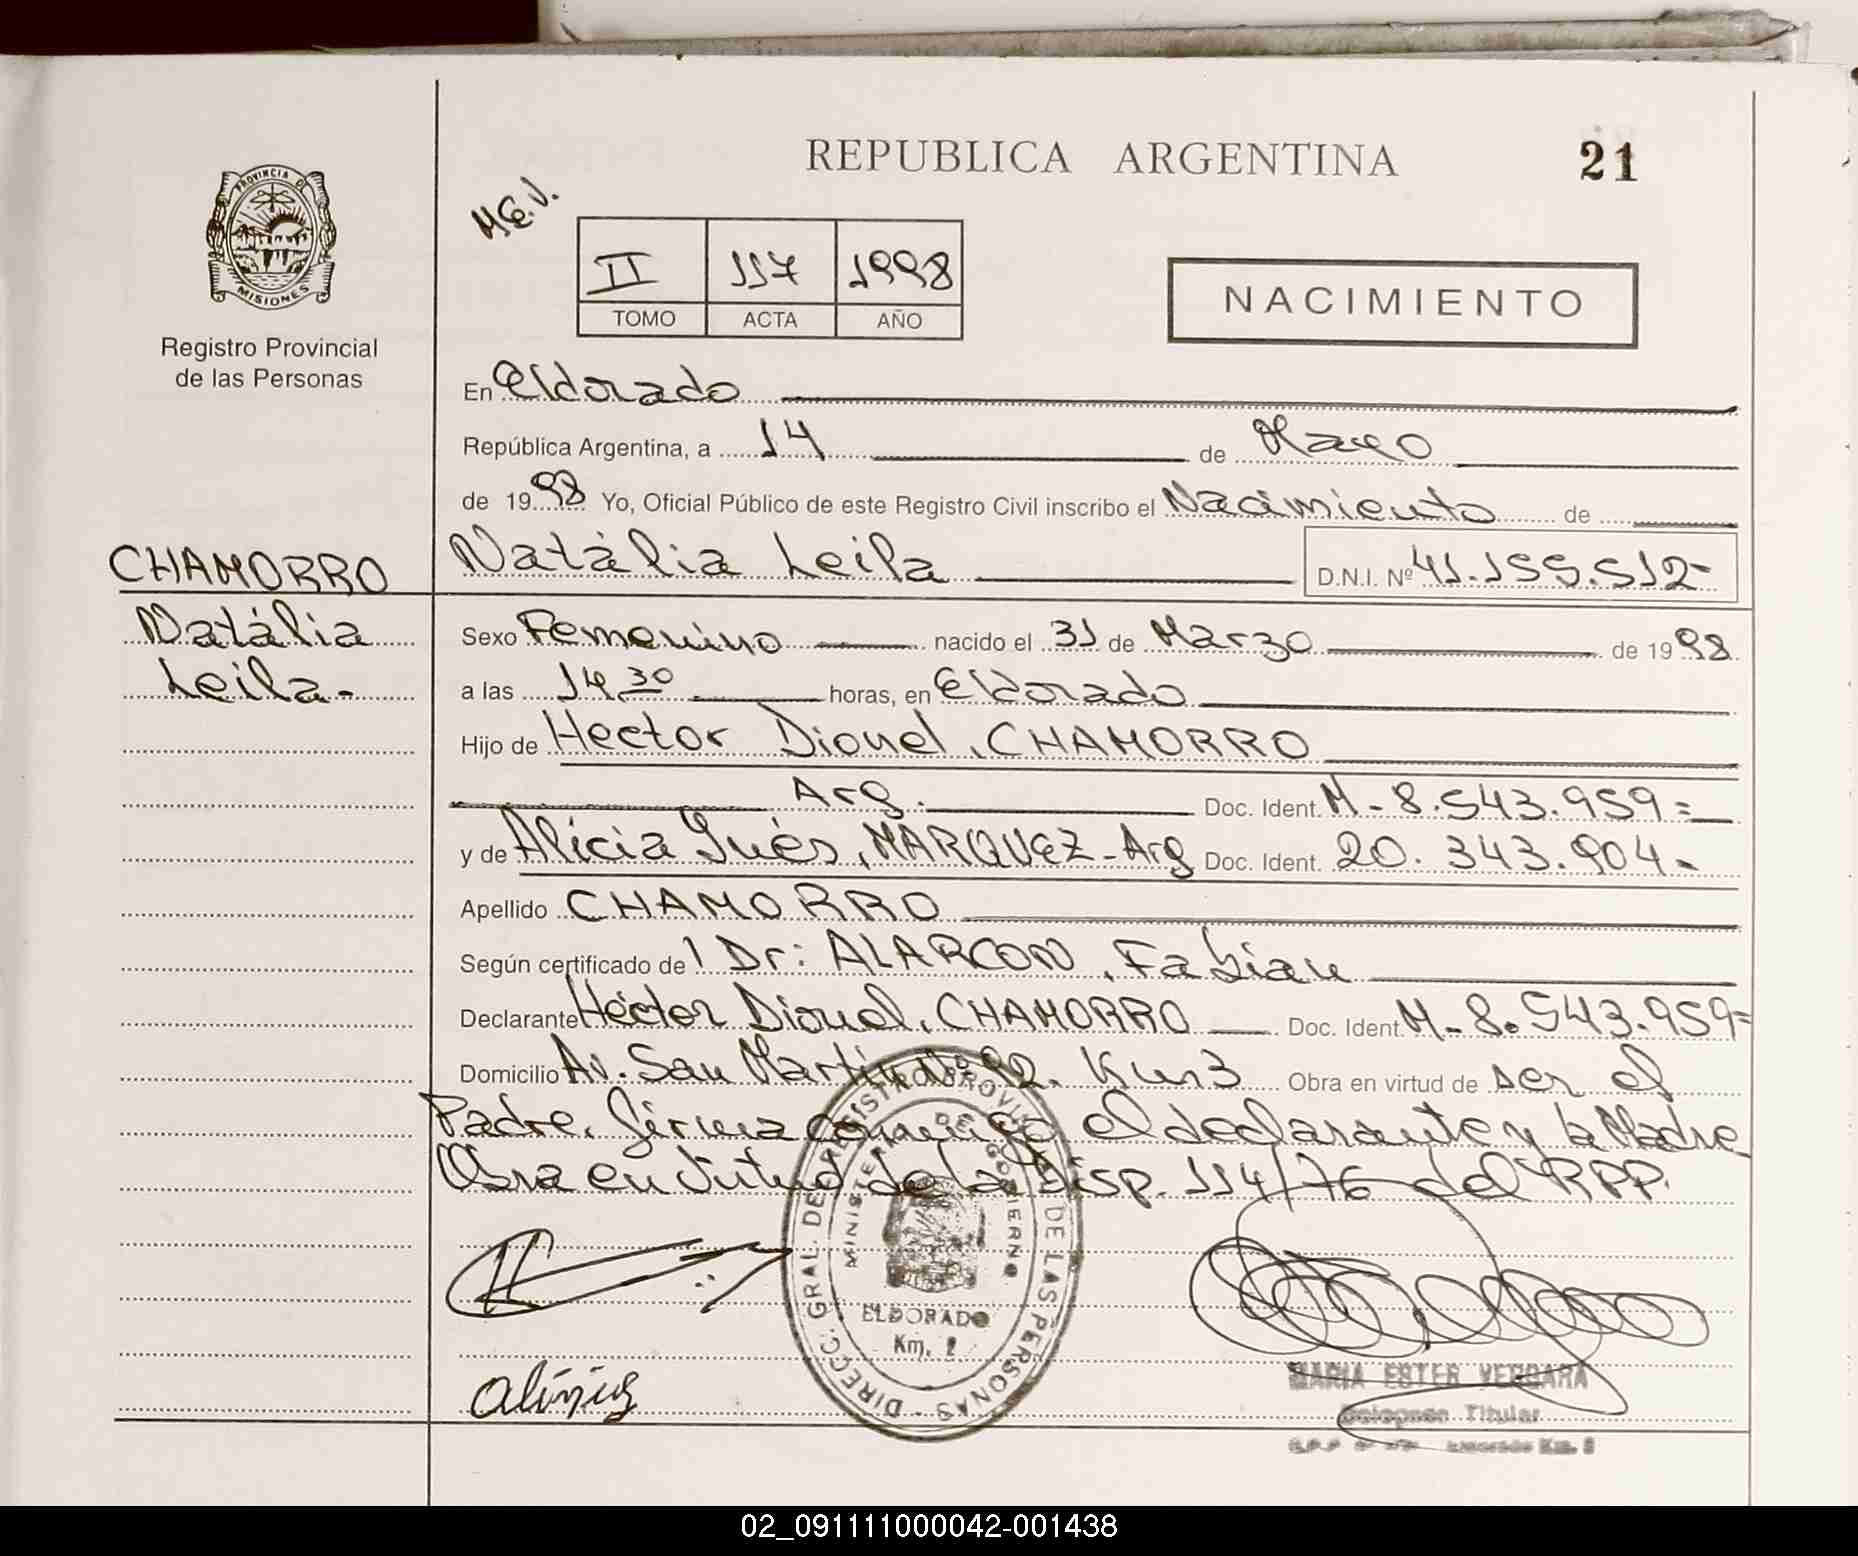 REPUBLICA ARGENTINA
21
PROVINCIA DE
MISIONES
Registro Provincial
de las Personas
M.E.V.
II 117 1998
TOMO ACTA AÑO
NACIMIENTO
En Eldorado
República Argentina, a 14 de Mayo
de 1998 Yo, Oficial Público de este Registro Civil inscribo el Nacimiento de
CHAMORRO
Natália Leila
Natália Leila D.N.I. Nº 41.155.512-
Sexo Femenino nacido el 31 de Marzo de 1998
a las 14 30 horas, en Eldorado
Hijo de Hector Dionel, CHAMORRO
Arg. Doc. Ident. M-8.543.959=
y de Alicia Inés, MARQUEZ-Arg Doc. Ident. 20.343.904-
Apellido CHAMORRO
Según certificado de l Dr: ALARCON, Fabian
Declarante Héctor Dionel, CHAMORRO Doc. Ident. M-8.543.959=
Domicilio Av. San Martin Nº 92. Km3 Obra en virtud de ser el
Padre. firma conmigo el declarante y la Madre
Obra en virtud de la Disp. 114/76 del RPP.
DIRECC. GRAL. DEL REGISTRO PROVINCIAL DE LAS PERSONAS
MINISTERIO DE GOBIERNO
ELDORADO
Km. 2
MARIA ESTER VERGARA
Delegado Titular
02_091111000042-001438